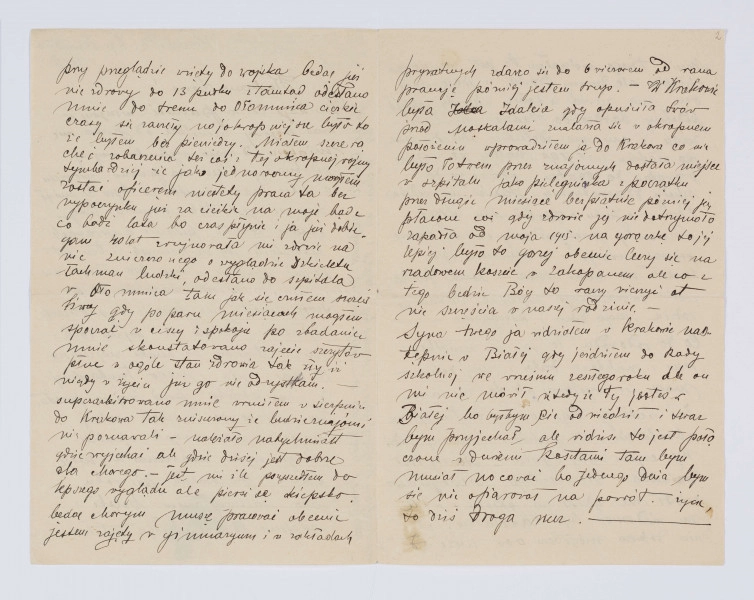 2
przy przeglądzie wzięty do wojska będąc już
nie zdrowy do 13 pułku i stamtąd odesłano
mnie do trenu do Ołomuńca ciężkie
czasy się zaczęły najokropniejsze było to
że byłem bez pieniędzy. Miałem szczerą
chęć zobaczenia się coś i tej okropnej wojny
dziej że jako jednoroczny mogłem
zostać oficerem niestety praca ta bez
wypoczynku już za ciężka na moje bądź
co bądź lata bo czas płynie i ja już dobie-
gam 40 lat zrujnowała mi zdrowie na
nic zniszczonego o wyglądzie szkieletu
ludzki, odesłano do szpitala
w Ołomuńcu tam jak się czułem
gdy po paru miesiącach mogłem
spocząć w ciszy i spokoju po zbadaniu
mnie skonstatowano zajęcie szczytów
płuc i ogóle stan zdrowia tak zły iż
nigdy w życiu już go nie odzyskam. —
superarbitrowano mnie wróciłem w sierpniu
do Krakowa tak zniszczony że ludzie znajomi
nie poznawali — należało natychmiast
gdzieś wyjechać ale gdzie dzisiaj jest dobrze
dla chorego. — Jeść mi ile przyszedłem do
lepszego wyglądu ale piersi są kiepsko.
będąc chorym muszę pracować obecnie
jestem zajęty w gimnazyum i w zakładach
prywatnych zdarza się do 6 wieczorem od rana
pracuję później jestem trup. — W Krakowie
była Izalcia gdy opuściła Lwów
przed Moskalami znalazła się w okropnem
położeniu wprowadziłem ją do Krakowa co nie
było łatwem przez znajomych dostała miejsce
w szpitalu jako pielęgniarka z początku
przez długie miesiące bezpłatnie później jej
płacono coś gdy zdrowie jej nie dotrzymało
zapadła od maja 1915. na gorączkę to jej
lepiej było to gorzej obecnie leczy się na
rządowem koszcie w Zakopanem ale co z
tego będzie Bóg to raczy wiedzieć ot
nie szczęścia w naszej rodzinie. —
Syna twego ja widziałem w Krakowie nas-
tępnie w Białej gdy jeździłem do Rady
szkolnej we wrześniu zeszłego roku ale on
mi nic mówił że ty jesteś w
Białej bo byłbym Cię odwiedził i
bym przyjechał, ale widzisz to jest połą-
czone z dużemi kosztami tam bym
musiał nocować bo jednego dnia bym
się nie ofiarował na powrót.
to dziś droga